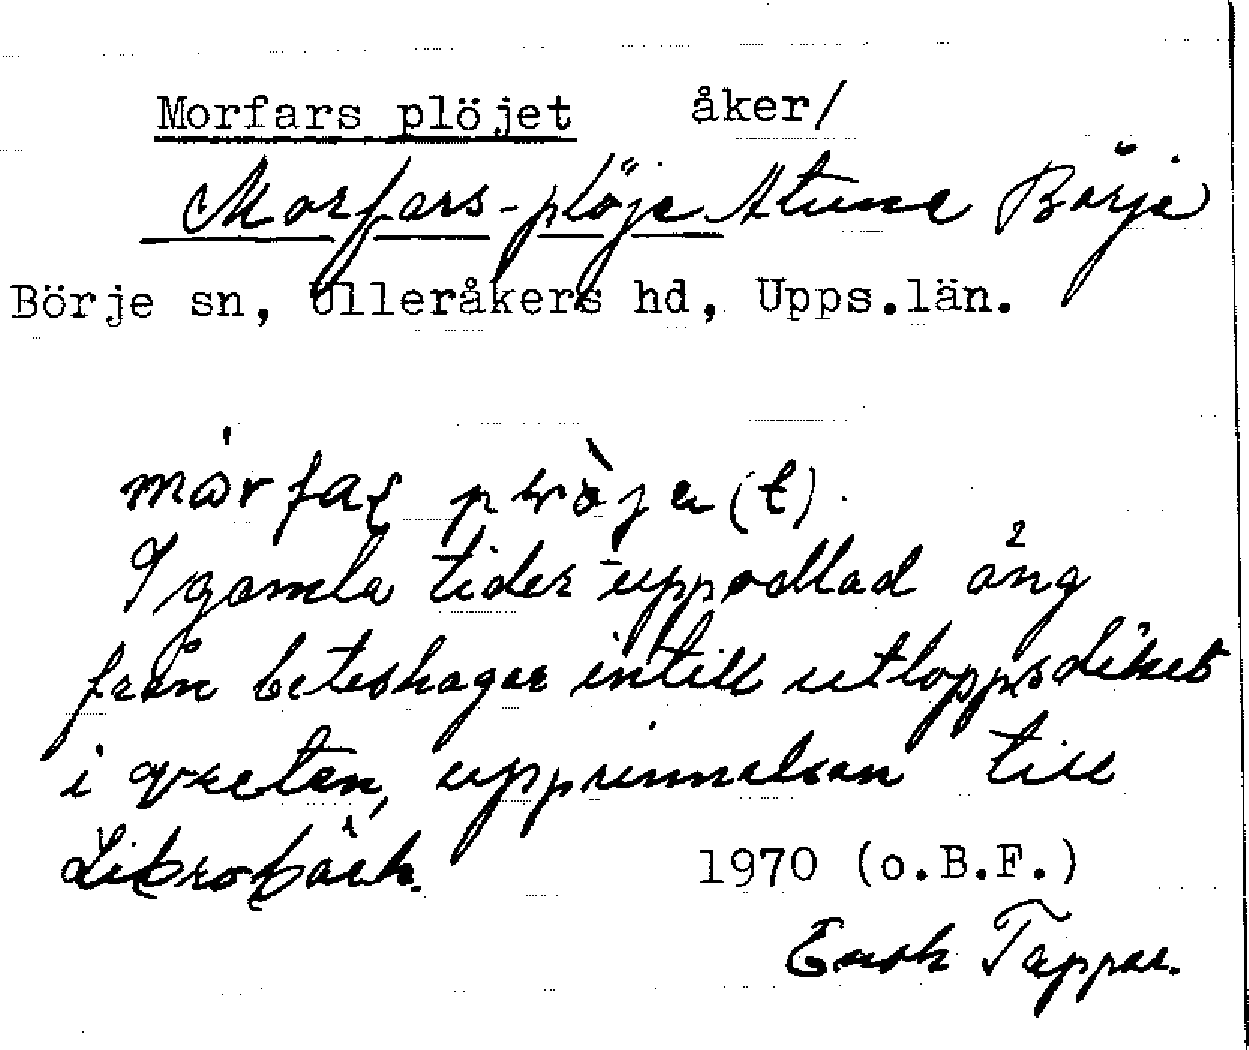 Morfars plöjet åker/
Morfars-plöje Altuna Börje
Börje sn, Ulleråkers hd, Upps.län.
mórfas plòje(t).
I gamla tider uppodlad äng
från beteshagar intill utloppsdiket
i vreten, upprinnelsen till
Librobäck.
1970 (o.B.F.)
Erik Tapper.